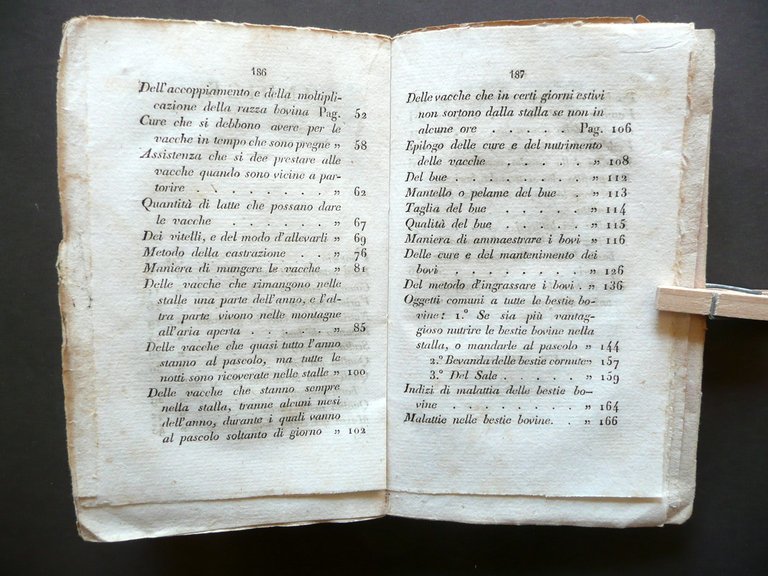 186
Dell'accoppiamento e della moltipli-
cazione della razza bovina Pag. 52
Cure che si debbono avere per le
vacche in tempo che sono pregne „ 58
Assistenza che si dee prestare alle
vacche quando sono vicine a par-
torire . . . . . . . . „ 62
Quantità di latte che possano dare
le vacche . . . . . . . „ 67
Dei vitelli, e del modo d'allevarli „ 69
Metodo della castrazione . . . „ 76
Maniera di mungere le vacche . „ 81
Delle vacche che rimangono nelle
stalle una parte dell'anno, e l'al-
tra parte vivono nelle montagne
all'aria aperta . . . . . . „ 85
Delle vacche che quasi tutto l'anno
stanno al pascolo, ma tutte le
notti sono ricoverate nelle stalle „ 100
Delle vacche che stanno sempre
nella stalla, tranne alcuni mesi
dell'anno, durante i quali vanno
al pascolo soltanto di giorno „ 102
187
Delle vacche che in certi giorni estivi
non sortono dalla stalla se non in
alcune ore . . . . . Pag. 106
Epilogo delle cure e del nutrimento
delle vacche . . . . . . „ 108
Del bue . . . . . . . . „ 112
Mantello o pelame del bue . . „ 113
Taglia del bue . . . . . . „ 114
Qualità del bue . . . . . . „ 115
Maniera di ammaestrare i bovi . „ 116
Delle cure e del mantenimento dei
bovi . . . . . . . . . „ 126
Del metodo d'ingrassare i bovi . „ 136
Oggetti comuni a tutte le bestie bo-
vine: 1.° Se sia più vantag-
gioso nutrire le bestie bovine nella
stalla, o mandarle al pascolo „ 144
2.° Bevanda delle bestie cornute „ 157
3.° Del Sale . . . . . . „ 159
Indizi di malattia delle bestie bo-
vine . . . . . . . . . „ 164
Malattie nelle bestie bovine. . „ 166